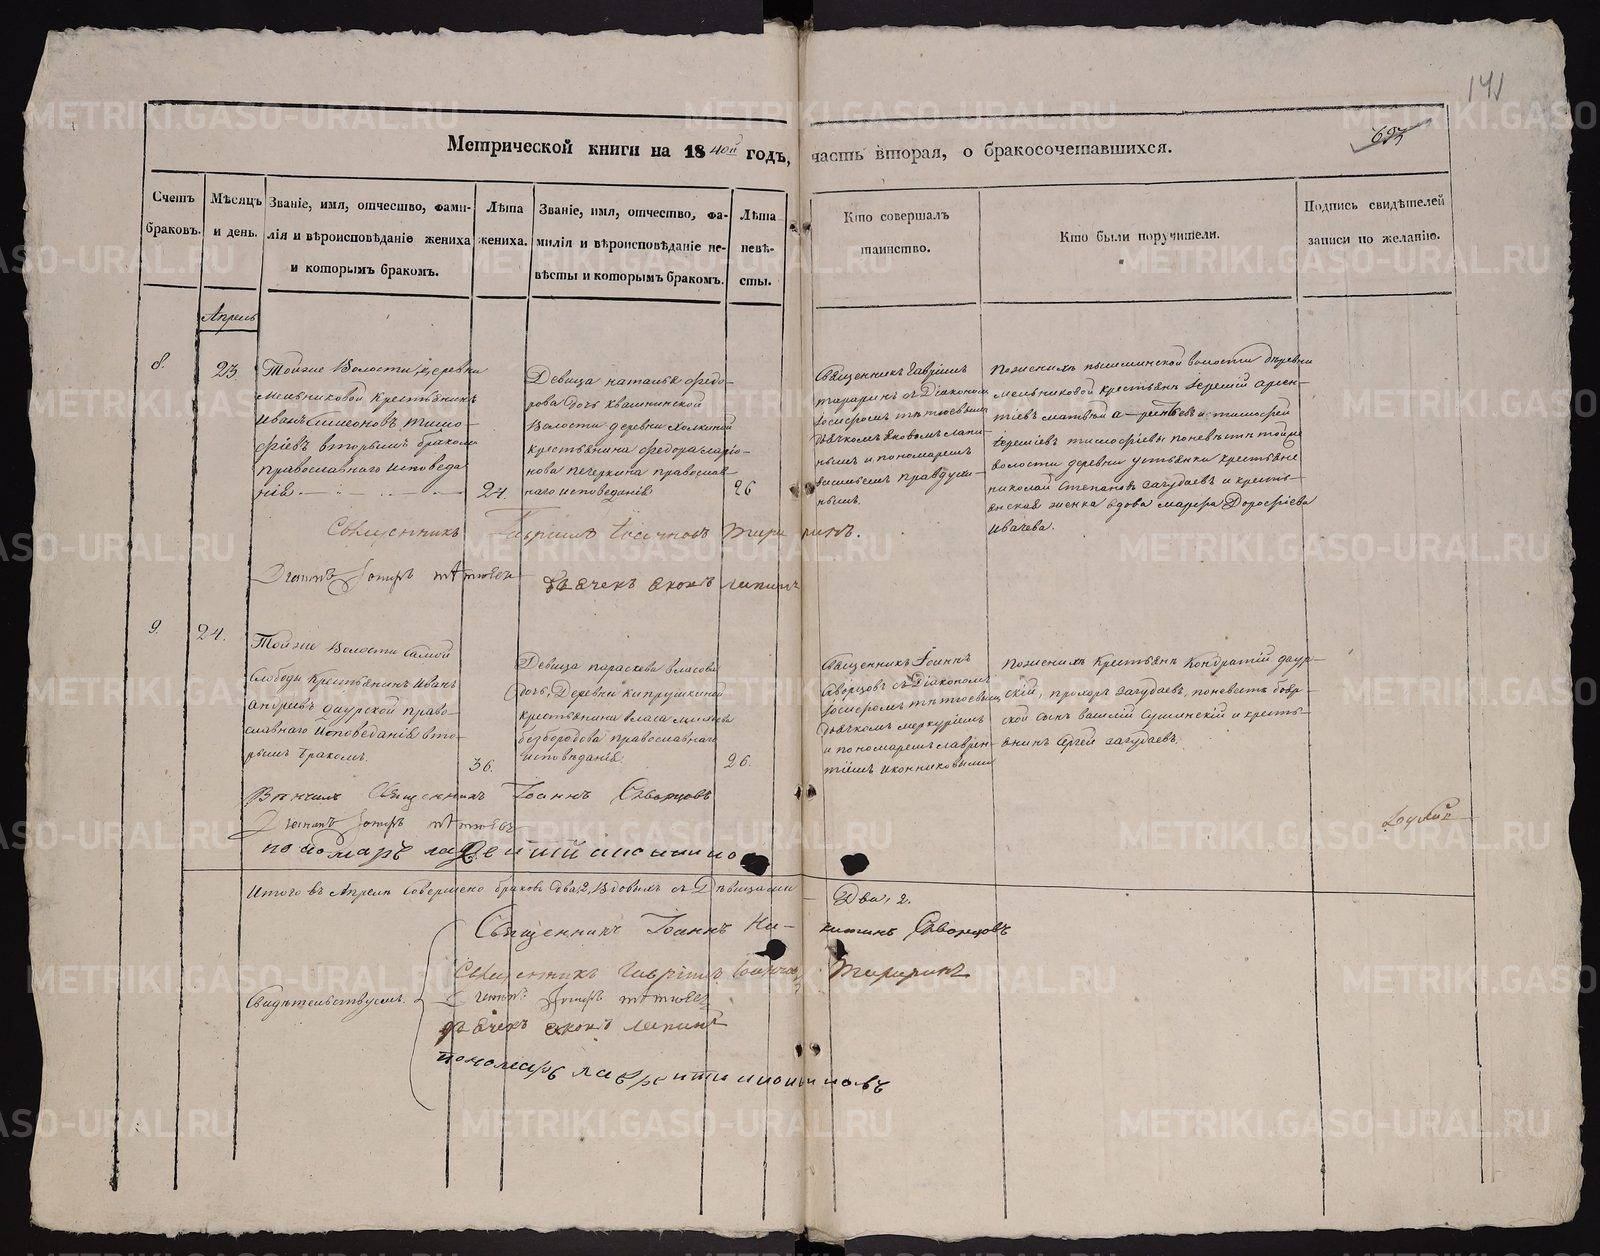 141
693
Метрической книги на 1840й годъ, часть вторая, о бракосочетавшихся.
Счетъ браковъ.
Мѣсяцъ и день.
Званіе, имя, отчество, фами-
лія и вѣроисповѣданіе жениха
и которымъ бракомъ.
Лѣта
жениха.
Званіе, имя, отчество, фа-
милія и вѣроисповѣданіе не-
вѣсты и которымъ бракомъ.
Лѣта
невѣ-
сты.
Кто совершалъ
таинство.
Кто были поручители.
Подпись свидѣтелей
записи по желанію.
Апрель
8.
23
Тойже Волости деревни
Мельниковой крестьянинъ
Иванъ Симеоновъ Тимо-
фіевъ вторымъ бракомъ
православнаго исповеда
нія
24.
Девица наталья федо-
рова дочь Квашнинской
Волости деревни Холкиной
крестьянина федора ларіо-
нова печеркина православ-
наго исповеданія
26
Священникъ Гавріилъ
тараринъ съ Діакономъ
Іосифомъ тѣтюевымъ
дьячкомъ яковомъ лапи-
нымъ и пономаремъ
нымъ.
поженихъ пышминской волости деревни
мельниковой крестьяне Іеремій арсен-
тіевъ матвѣй арсентьевъ и тимофей
Іеремѣевъ тимофіевы поневѣсте тойже
волости деревни устьянки крестьяне
николай Степановъ загудаевъ и кресть-
янская женка вдова марфа Дорофіева
Ивачева.
Священникъ Гавріилъ Тараринъ.
Діаконъ Іосифъ тѣтюевъ
дьячекъ яковъ лапинъ
9.
24.
Тойже Волости самой
слободы крестьянинъ Иванъ
андріевъ даурской право-
славнаго исповеданія вто-
рымъ бракомъ.
36.
Девица параскева власова
дочь, деревни Кипрушкиной
крестьянина власа
безбородова православнаго
исповѣданія.
26.
Священникъ Іоаннъ
скворцовъ съ Діакономъ
Іосифомъ тѣтюевымъ
дьячкомъ меркуріемъ
и пономаремъ лаврен-
тіемъ иконниковыми
поженихъ крестьяне Кондратій даур-
скій, прохоръ загудаевъ, поневесте бояр-
ской сынъ василій Сушинскій и кресть-
янинъ сергей загудаевъ.
Вѣнчалъ Священникъ Іоаннъ Скворцовъ
Діаконъ Іосифъ тѣтюевъ
Итого въ Апреле совершено браковъ два, 2, вдовыхъ съ девицами Два, 2.
Свидѣтельствуемъ.
Священникъ Іоаннъ Никитинъ Скворцовъ
Священникъ Гавріилъ Тараринъ
Діаконъ Іосифъ тѣтюевъ
дьячекъ яковъ лапинъ
пономарь лаврентій иконниковъ